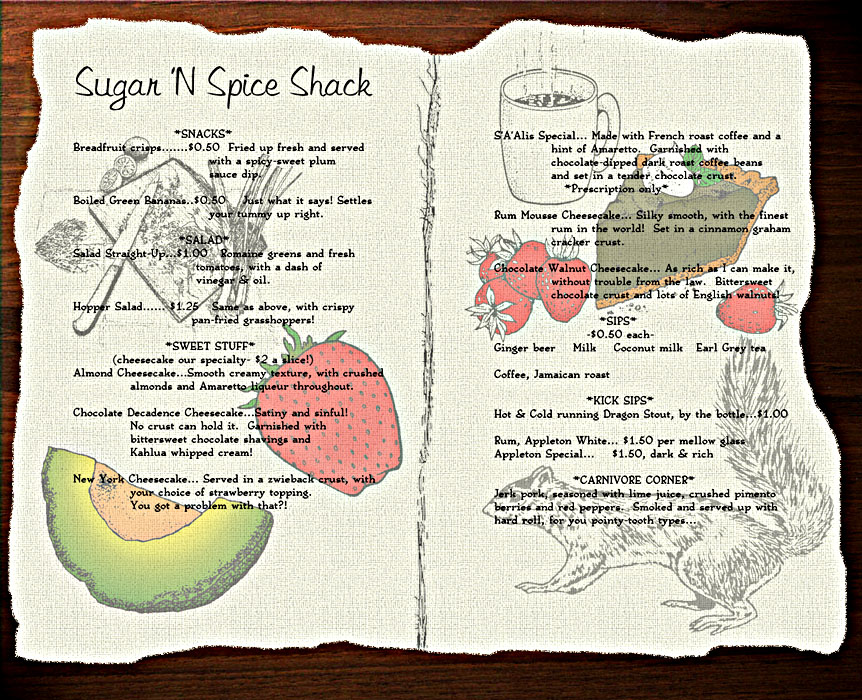 Sugar 'N Spice Shack
*SNACKS*
Breadfruit crisps.......$0.50 Fried up fresh and served
with a spicy-sweet plum
sauce dip.
Boiled Green Bananas..$0.50 Just what it says! Settles
your tummy up right.
*SALAD*
Salad Straight-Up...$1.00 Romaine greens and fresh
tomatoes, with a dash of
vinegar & oil.
Hopper Salad...... $1.25 Same as above, with crispy
pan-fried grasshoppers!
*SWEET STUFF*
(cheesecake our specialty- $2 a slice!)
Almond Cheesecake...Smooth creamy texture, with crushed
almonds and Amaretto liqueur throughout.
Chocolate Decadence Cheesecake...Satiny and sinful!
No crust can hold it. Garnished with
bittersweet chocolate shavings and
Kahlua whipped cream!
New York Cheesecake... Served in a zwieback crust, with
your choice of strawberry topping.
You got a problem with that?!
S'A'Alis Special... Made with French roast coffee and a
hint of Amaretto. Garnished with
chocolate-dipped dark roast coffee beans
and set in a tender chocolate crust.
*Prescription only*
Rum Mousse Cheesecake... Silky smooth, with the finest
rum in the world! Set in a cinnamon graham
cracker crust.
Chocolate Walnut Cheesecake... As rich as I can make it,
without trouble from the law. Bittersweet
chocolate crust and lots of English walnuts!
*SIPS*
-$0.50 each-
Ginger beer Milk Coconut milk Earl Grey tea
Coffee, Jamaican roast
*KICK SIPS*
Hot & Cold running Dragon Stout, by the bottle...$1.00
Rum, Appleton White... $1.50 per mellow glass
Appleton Special... $1.50, dark & rich
*CARNIVORE CORNER*
Jerk pork, seasoned with lime juice, crushed pimento
berries and red peppers. Smoked and served up with
hard roll, for you pointy-tooth types...